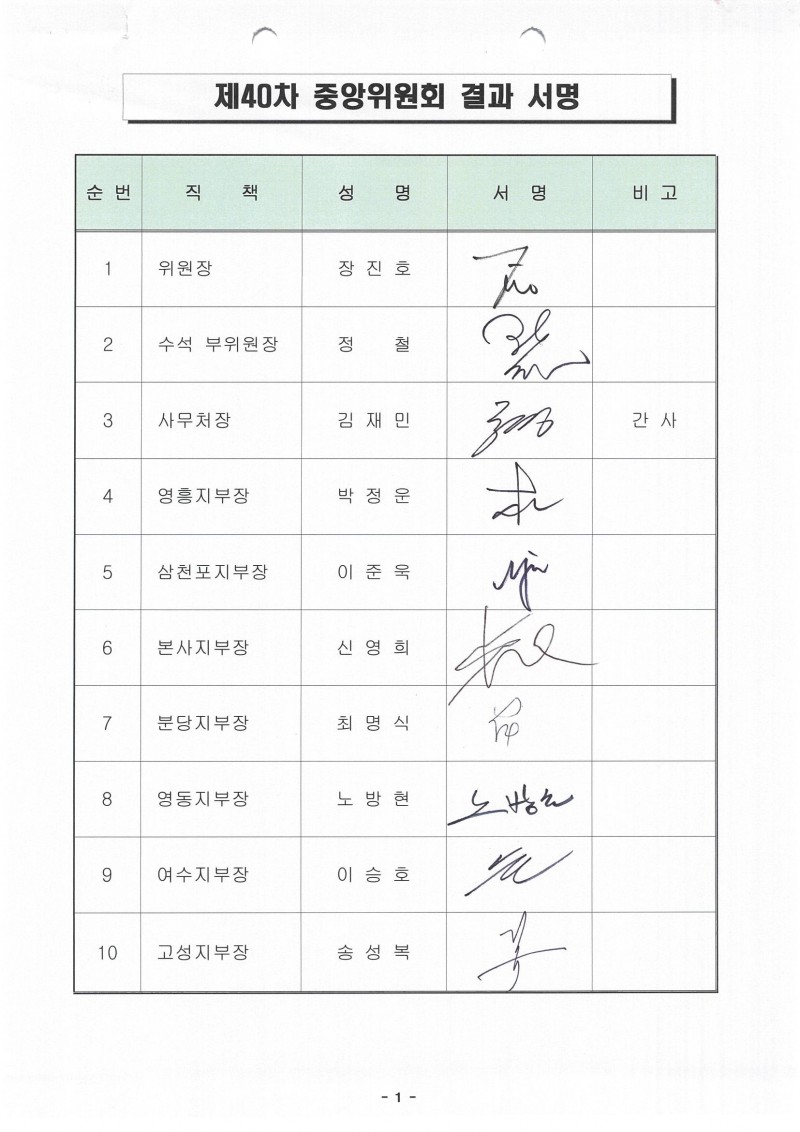 제40차 중앙위원회 결과 서명
순 번 직 책 성 명 서 명 비 고
1 위원장 장 진 호
2 수석 부위원장 정 철
3 사무처장 김 재 민 간 사
4 영흥지부장 박 정 운
5 삼천포지부장 이 준 욱
6 본사지부장 신 영 희
7 분당지부장 최 명 식
8 영동지부장 노 방 현 노방현
9 여수지부장 이 승 호
10 고성지부장 송 성 복
- 1 -